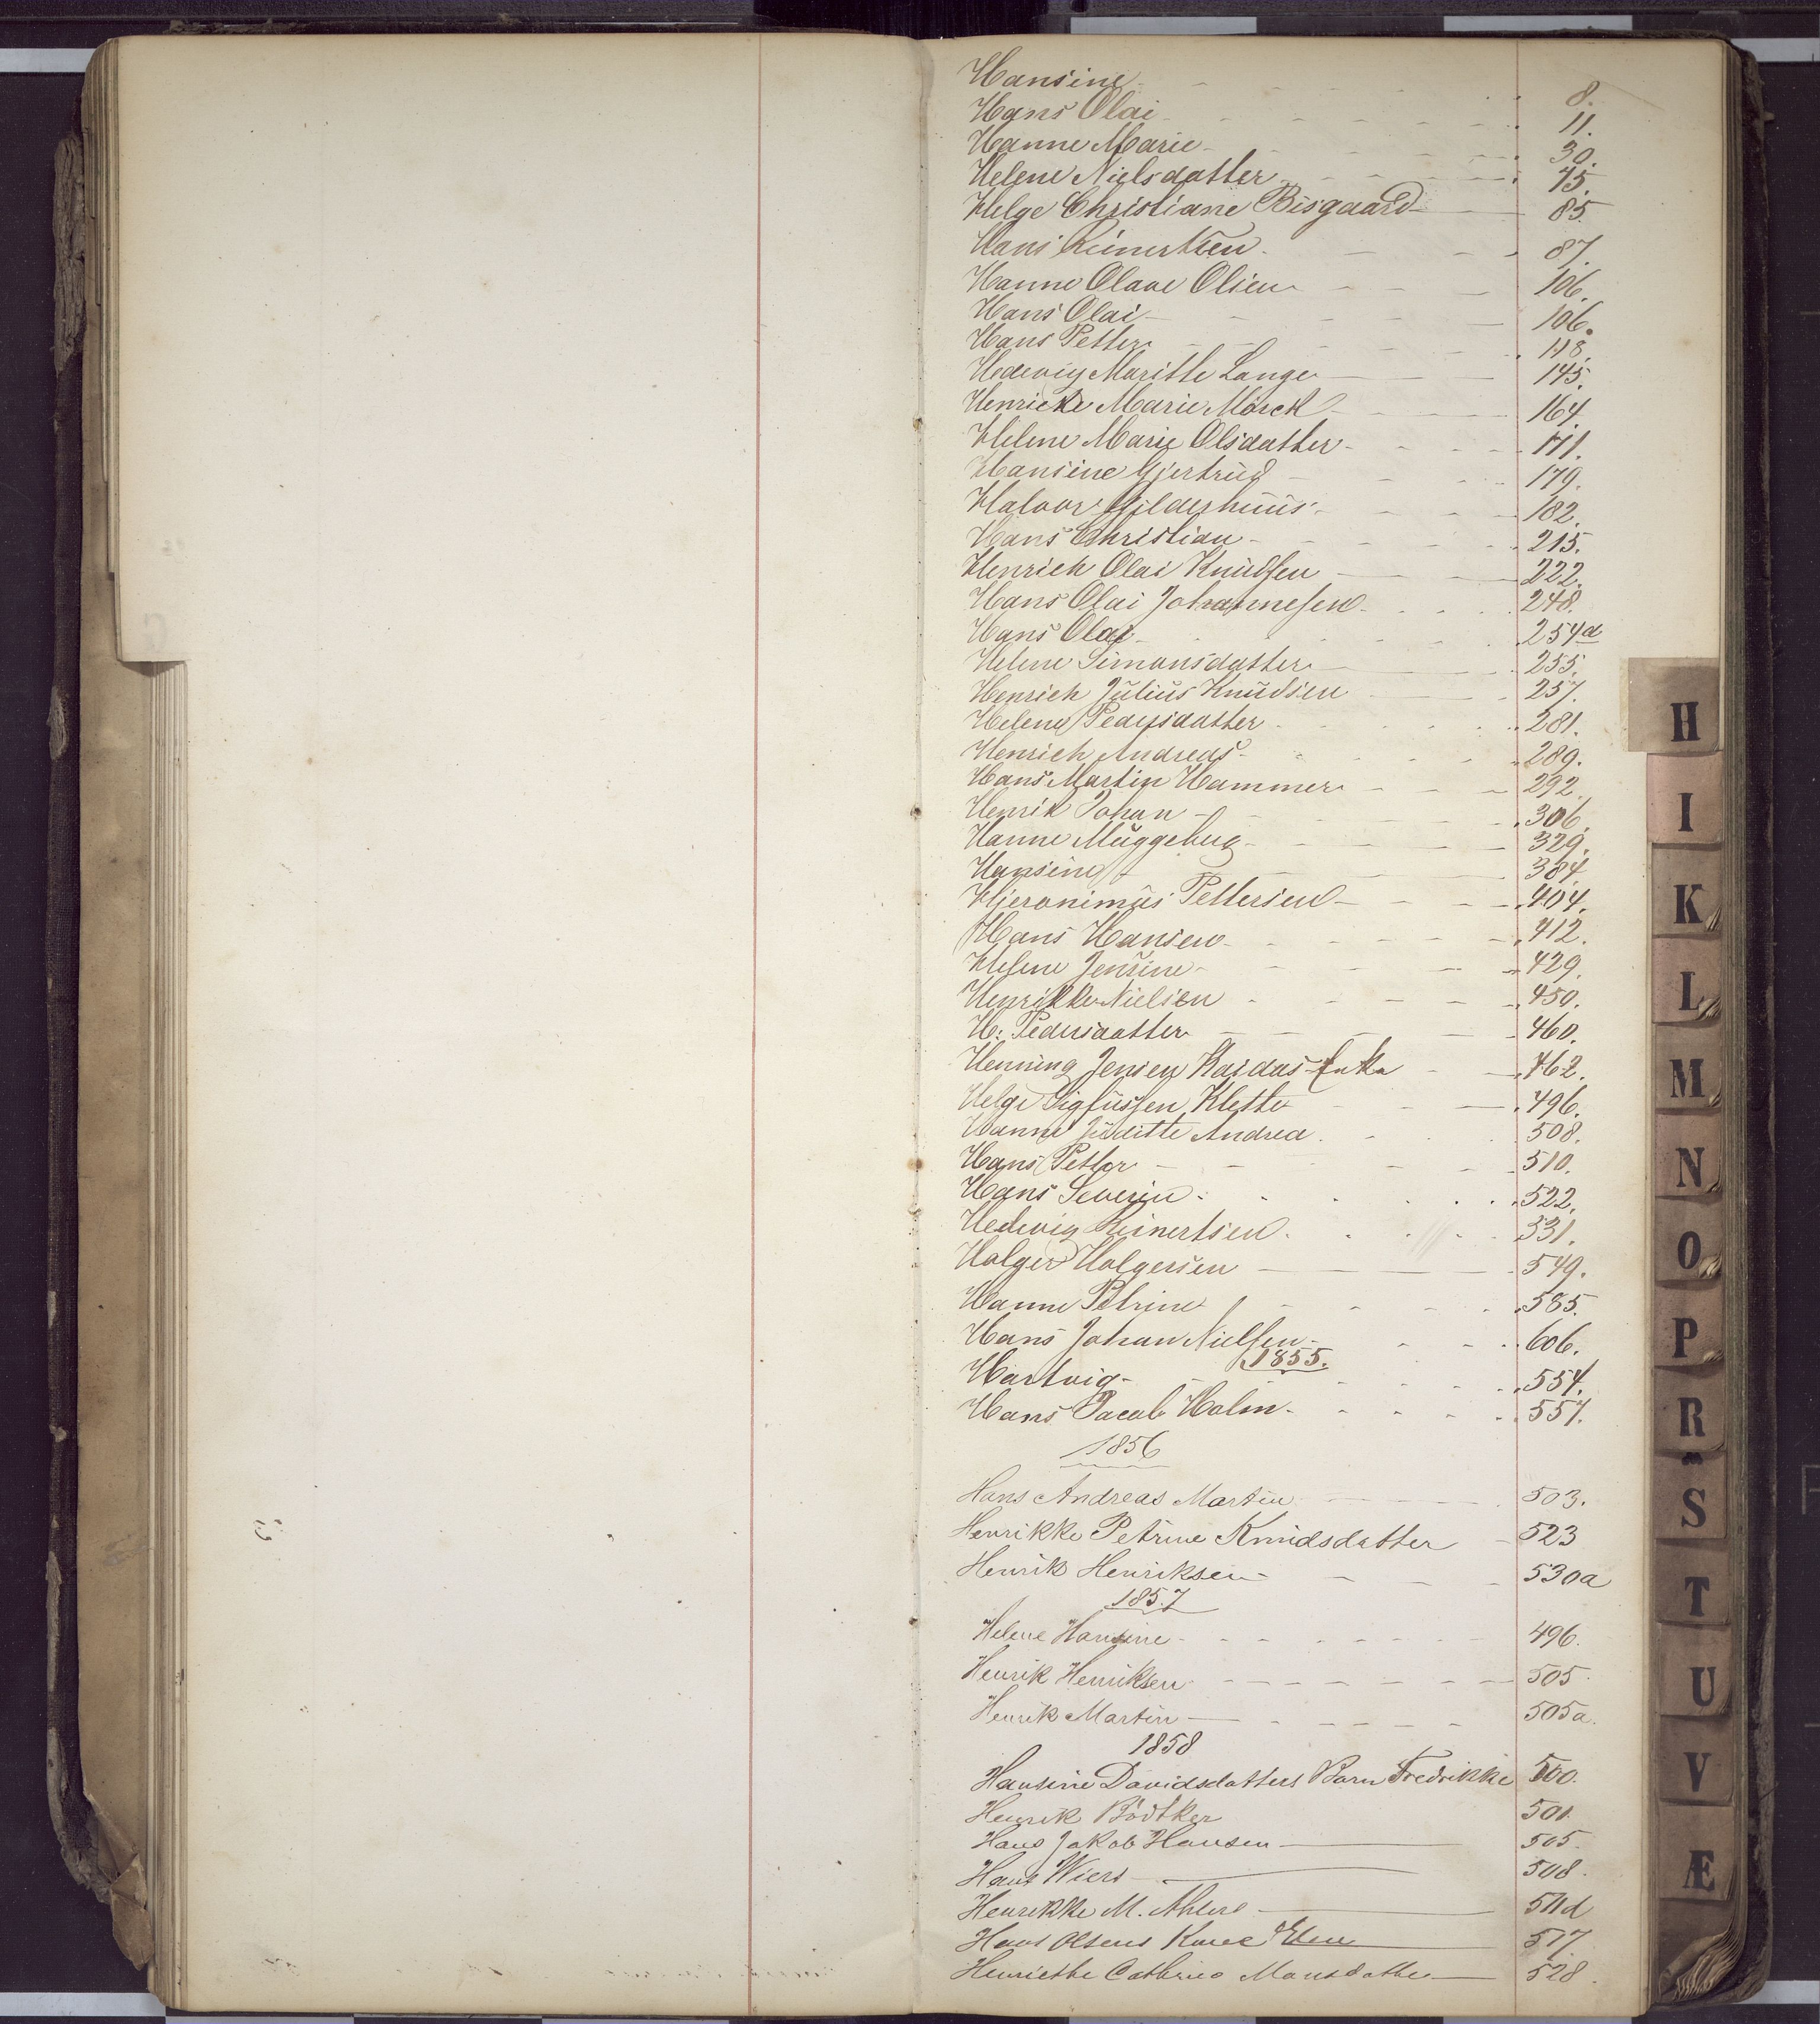 Hansine - 8.
Hans Olai - 11.
Hanne Marie - 30.
Helene Nielsdatter - 45.
Helge Christiane Bisgaard - 85
Hans Reinertsen - 87.
Hanne Olave Olsen - 106.
Hans Olai - 106.
Hans Petter - 118.
Hedevig Maritte Lange - 145.
Henricke Marie Mörck - 164.
Helene Marie Olsdatter - 171.
Hansine Gjertrud - 179.
Halvor Gilderhuus - 182.
Hans Christian - 215.
Henrich Olai Knudsen - 222.
Hans Olai Johannesen - 248.
Hans Olai - 254d
Helene Simonsdatter - 255.
Henrich Julius Knudsen - 257.
Helene Pedersdatter - 281.
Henrich Andreas - 289.
Hans Martin Hammer - 292.
Henrik Johan - 306.
Hanne Muggebug - 329.
Hansine - 384.
Hjeronimus Pettersen - 404.
Hans Hansen - 412.
Helene Jensine - 429.
Henrikke Nielsen - 450.
H: Pedersdatter - 460.
Henning Jensen Enke - 462.
Helge Sigfussen Klette - 496.
Hanne Juditte Andrea - 508.
Hans Petter - 510.
Hans Severin - 522.
Hedevig Reinertsen - 531.
Holger Holgersen - 549.
Hanne Petrine - 585.
Hans Johan Nielsen - 606.
1855.
Hartvig - 554.
Hans Jacob Holm - 557.
1856
Hans Andreas Martin - 503.
Henrikke Petrine Knudsdatter - 523
Henrik Henriksen - 530a
1857
Helene Hansine - 496.
Henrik Henriksen - 505
Henrik Martin - 505a.
1858
Hansine Davidsdatters Barn Fredrikke 500.
Henrik Bödtker 501.
Hans Jakob Hansen - 505.
Hans Wiers - 508.
Henrikke M. Ahlers - 511d
Hans Olsens Kone Elen 517.
Henriette Cathrine Monsdatter - 528.
H
I
K
L
M
N
O
P
R
S
T
U
V
Æ